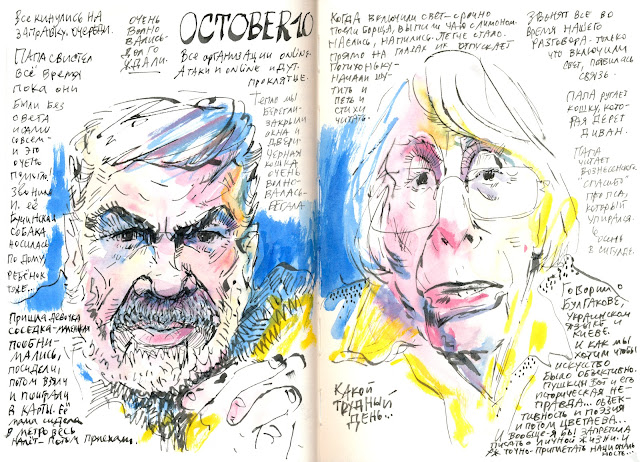 Все кинулись на
заправку. Очереди.
Очень
волно
вались.
Долго
ждали.
OCTOBER 10
Все организации online.
Атаки и online идут.
Проклятие.
Папа свистел
всё время
пока они
были без
света
совсем –
и это
очень
пугало.
и её
собака
носилась
по дому
ребёнок
тоже...
Тепло мы
берегли –
закрыли
окна и
двери
чёрная
кошка
очень
волно-
валась –
бегала.
Пришла девочка
соседка –
пообни-
мались,
посидели,
потом взяли
и поиграли
в карты. Её
мама сидела в
метро весь
налёт – потом приехали.
Когда включили свет – срочно
поели борща, выпили чая с лимоном.
Наелись, напились. Легче стало.
Прямо на глазах их отпускает
Потихоньку –
начали шу-
тить и
петь и
стихи
читать.
Звонят все во
время нашего
разговора. Только
что включили
свет, появилась
связь.
Папа ругает
кошку, кото-
рая дерёт
диван.
Папа
читает
Вознесенского.
"Спасибо"
про пса,
который
упирался.
6
осень
в Сигулде.
Говорим о
Булгакове,
украинском
языке и
Киеве.
И как мы
хотим чтобы
искусство
было объективно.
Пушкин Зой и его
историческая не-
правда... Объек-
тивность и поэзия
и потом Цветаева...
И вообще – я бы запретила
писать о личной жизни. И
уж точно – приплетать националь
ность...
Какой
трудный
день...